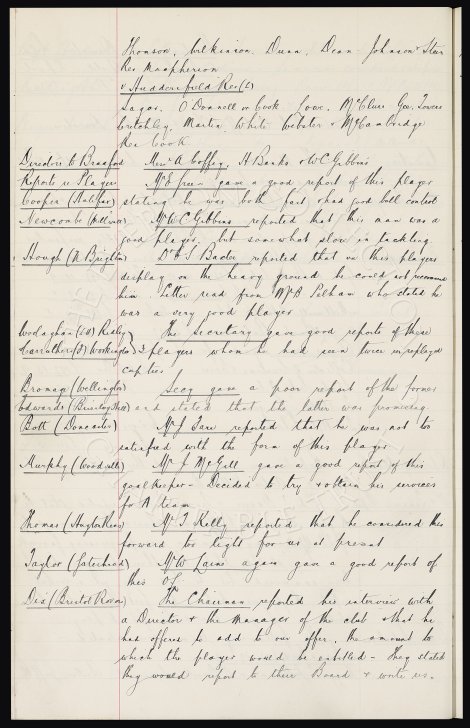 Thomson, Wilkinson, Dunn, Dean, Johnson & Stein
Res Macpherson
v Huddersfield Res (L)
Sagar. O'Donnell or Cook. Lowe. McClure. Gee. Towers
Critchley, Martin, White Webster & McCambridge
Res Cook
Directors to Bradford Messrs A Coffey, H Banks & W C Gibbins
Reports re Players Mr E Green gave a good report of this player
Cooper (Halifax) stating he was both fast & had good ball control
Newcombe Mr W C Gibbins reported that this man was a
good player, but somewhat slow in tackling.
Hough (N. Brighton) Dr C S Baxter reported that on this players
display on the heavy ground he could not recommend
him. Letter read from Mr B Pelham who stated he
was a very good player.
Woolaghan (LH) The Secretary gave good reports of these
Carruthers Workington players whom he had seen twice in replayed
cup ties.
Bromage (Wellington) Secy gave a poor report of the former
Edwards and stated that the latter was promising.
Bott (Doncaster) Mr J Sare reported that he was not to
satisfied with the form of this player
Murphy Mr J McGall gave a good report of this
goalkeeper - Decided to try & obtain his services
for A team
Thomas Mr T Kelly reported that he considered this
forward too light for us at present
Taylor (Gateshead) Mr W Laine again gave a good report of
this OL.
Dix (Bristol Rovers) The Chairman reported his interview with
a Director & the Manager of the club & that he
had offered to add to our offer, the amount to
which the player would be entitled - They stated
they would report to their Board & write us.